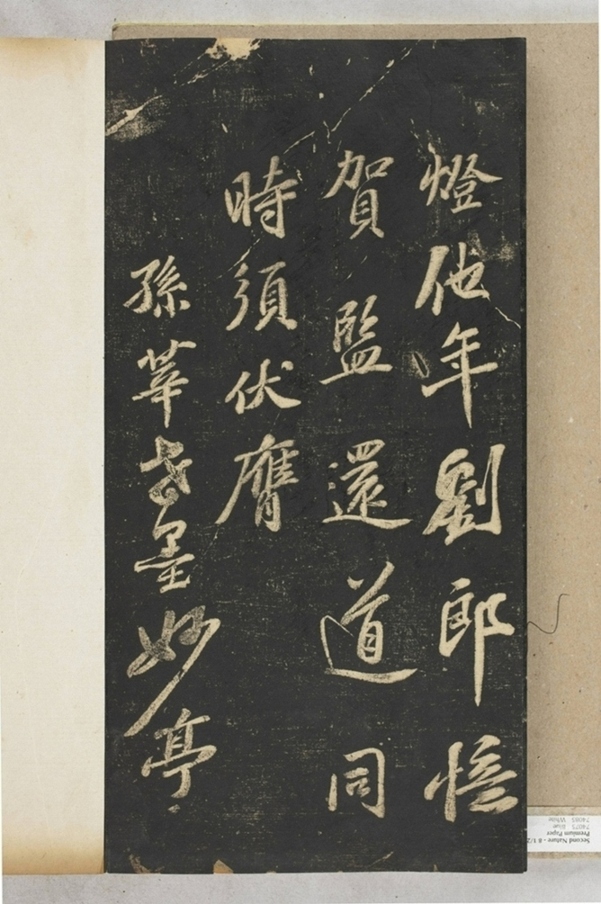 燈他年劉郎憶
賀監還道同
時須伏膺
孫莘老墨妙亭
Second Nature - 8 1/2
Premium Paper
Blue
White